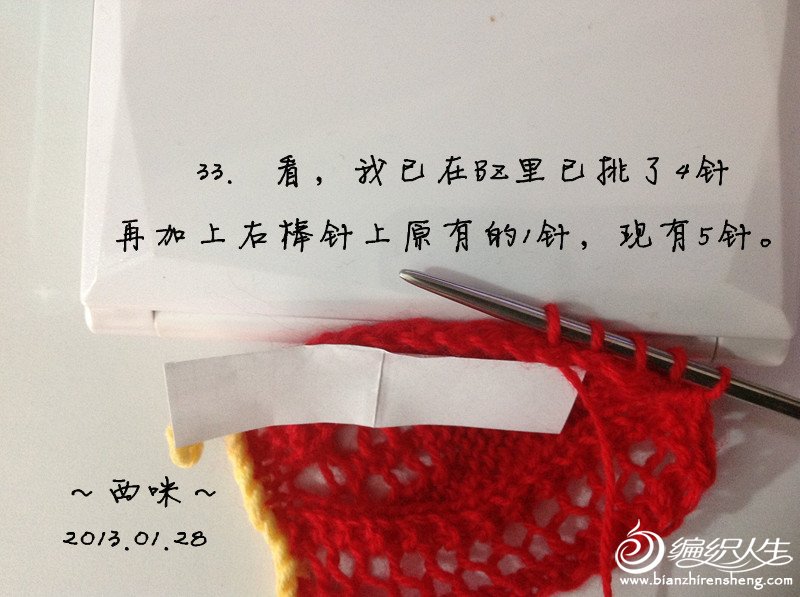 33. 看，我已在BZ里已挑了4针
再加上右棒针上原有的1针，现有5针。
~西咪~
2013.01.28
编织人生
www.bianzhirensheng.com